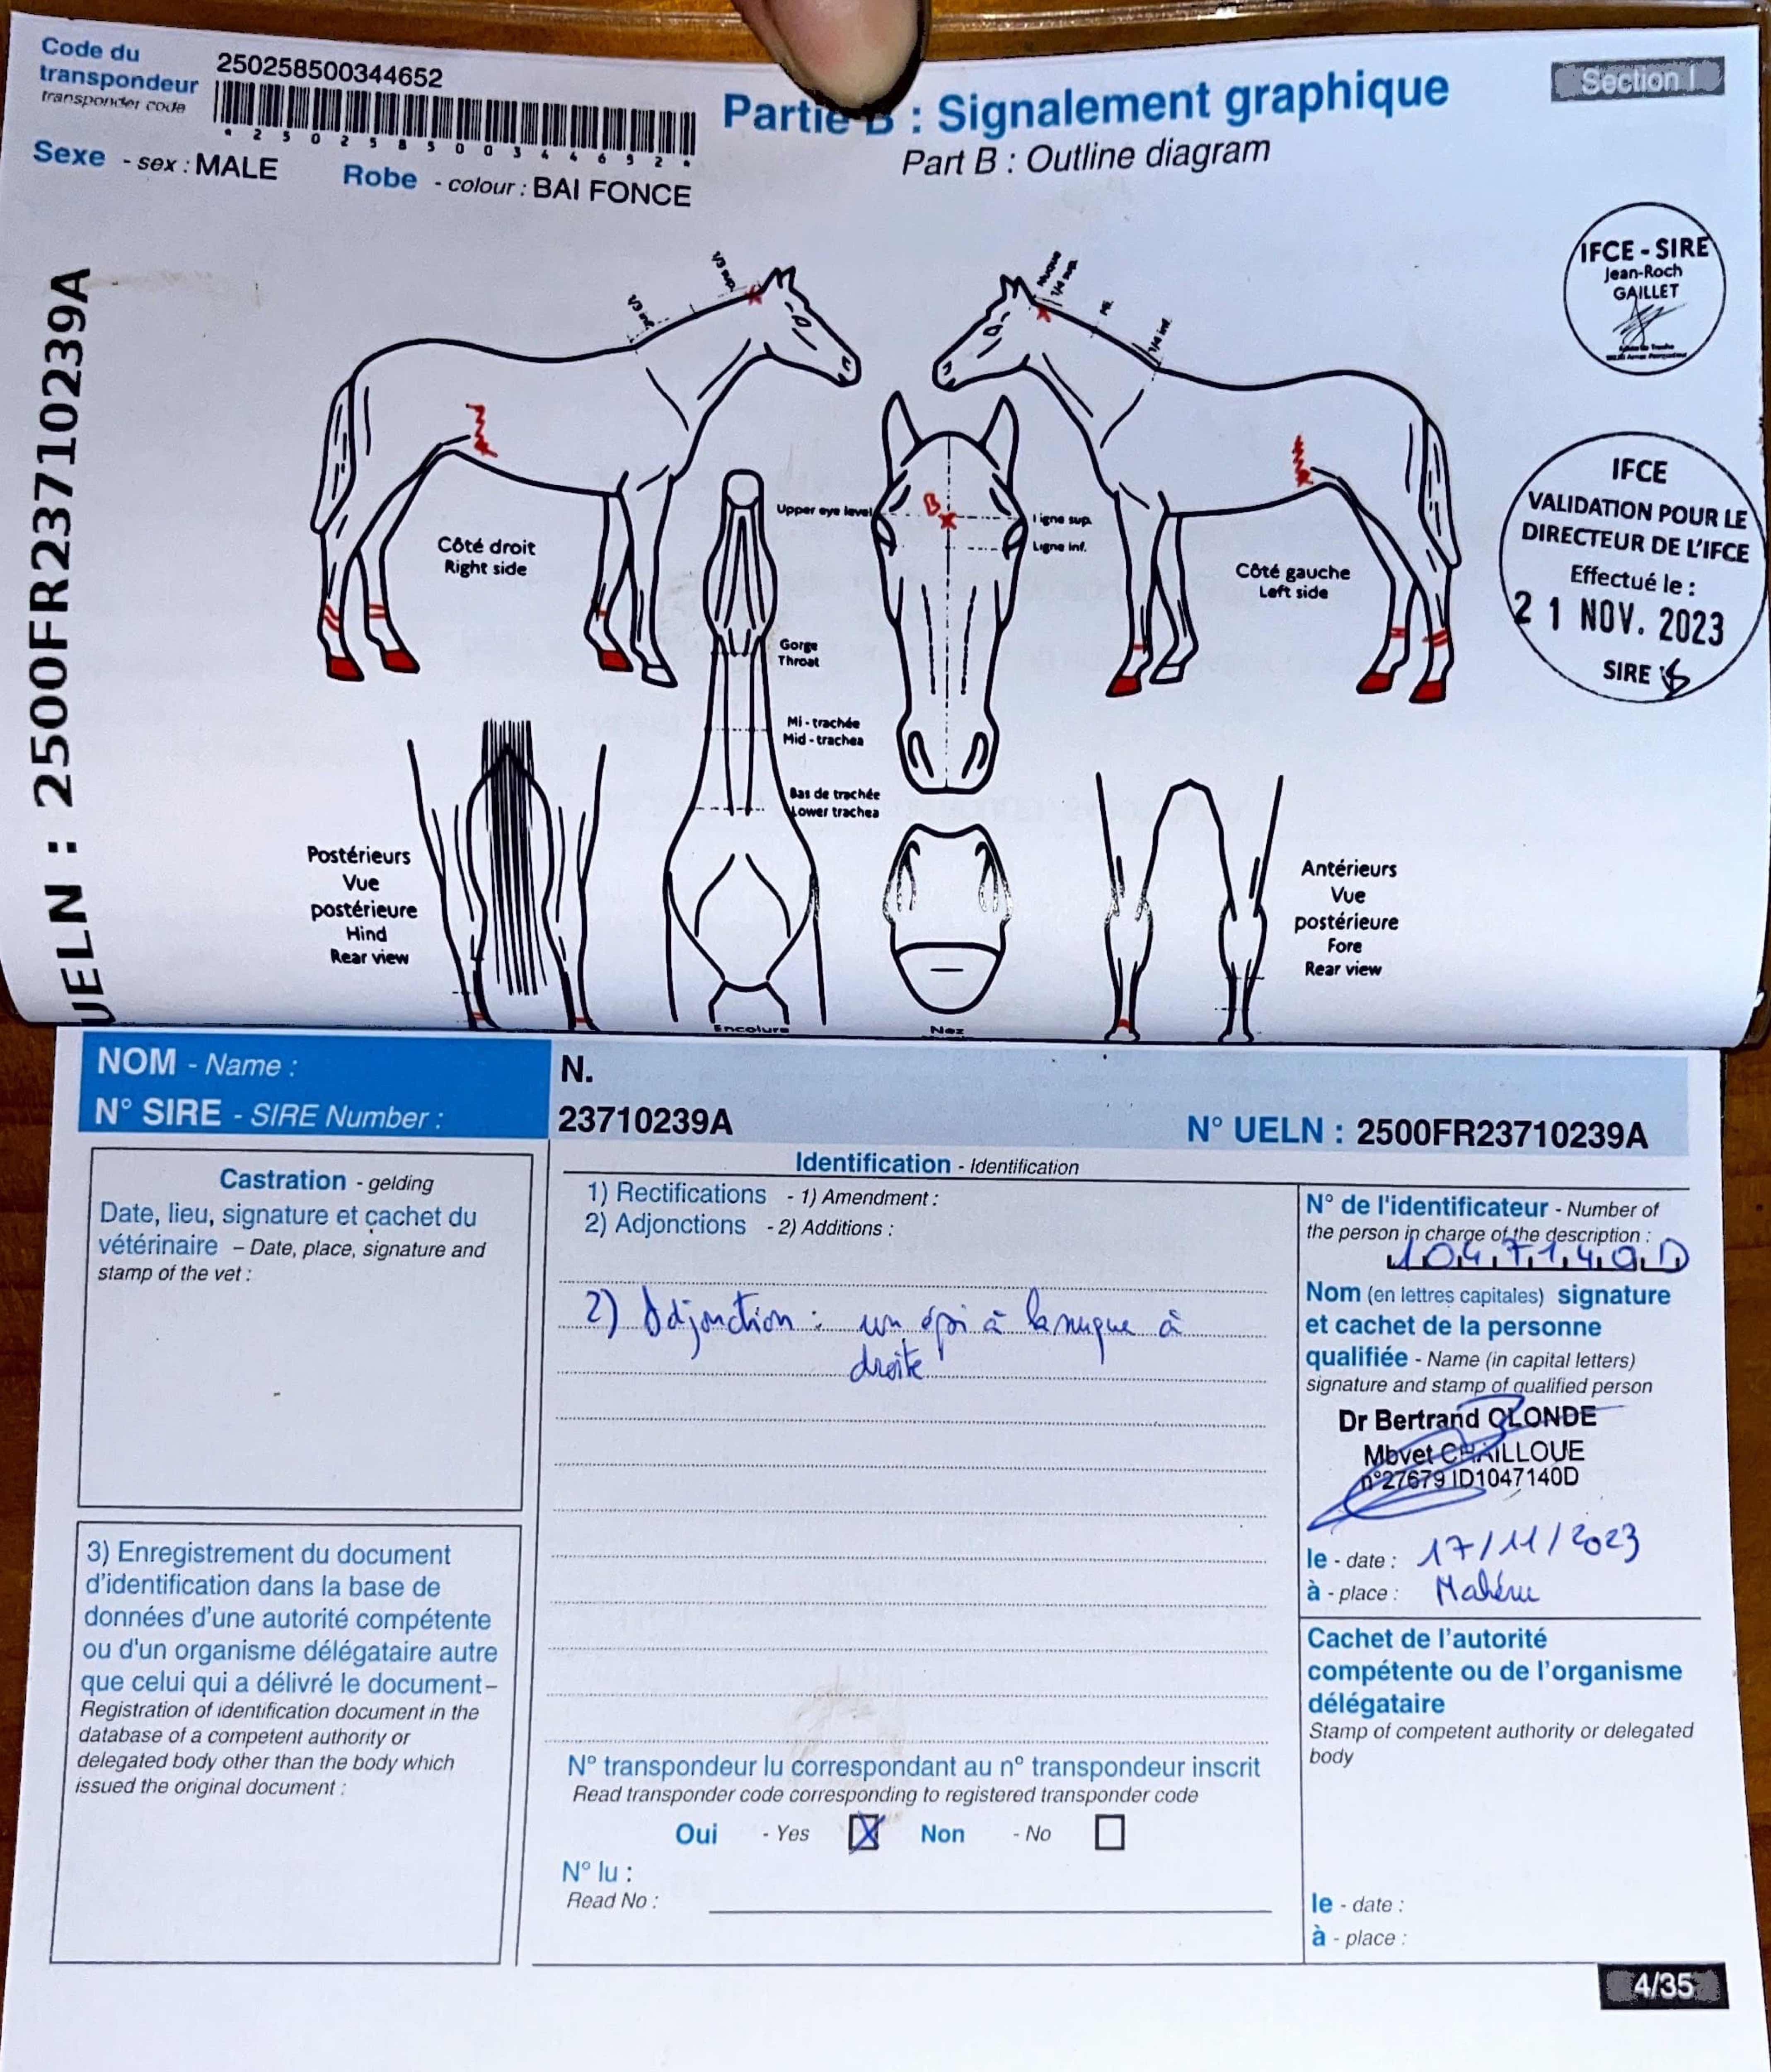 Code du
transpondeur
transponder code
250258500344652
* 2 5 0 2 5 8 5 0 0 3 4 4 6 5 2 *
Sexe - sex : MALE
Robe - colour : BAI FONCE
Partie B : Signalement graphique
Part B : Outline diagram
Section I
IFCE - SIRE
Jean-Roch
GAILLET
IFCE
VALIDATION POUR LE
DIRECTEUR DE L'IFCE
Effectué le :
21 NOV. 2023
SIRE
UELN : 2500FR23710239A
1/3 inf.
1/3 sup.
Nuque
1/4 sup.
Mi.
1/4 inf.
Côté droit
Right side
Upper eye level
B
Ligne sup.
Ligne inf.
Côté gauche
Left side
Gorge
Throat
Mi - trachée
Mid - trachea
Bas de trachée
Lower trachea
Postérieurs
Vue
postérieure
Hind
Rear view
Antérieurs
Vue
postérieure
Fore
Rear view
Encolure
Nez
NOM - Name :
N.
N° SIRE - SIRE Number :
23710239A
N° UELN : 2500FR23710239A
Castration - gelding
Date, lieu, signature et cachet du
vétérinaire – Date, place, signature and
stamp of the vet :
3) Enregistrement du document
d'identification dans la base de
données d'une autorité compétente
ou d'un organisme délégataire autre
que celui qui a délivré le document–
Registration of identification document in the
database of a competent authority or
delegated body other than the body which
issued the original document :
Identification - Identification
1) Rectifications - 1) Amendment :
2) Adjonctions - 2) Additions :
2) Adjonction : un épi à la nuque à
droite
N° transpondeur lu correspondant au n° transpondeur inscrit
Read transponder code corresponding to registered transponder code
Oui - Yes X Non - No
N° lu :
Read No :
N° de l'identificateur - Number of
the person in charge of the description :
1047140D
Nom (en lettres capitales) signature
et cachet de la personne
qualifiée - Name (in capital letters)
signature and stamp of qualified person
Dr Bertrand OLONDE
Mbvet CHAILLOUE
n°27679 ID1047140D
le - date : 17/11/2023
à - place : Mahéru
Cachet de l'autorité
compétente ou de l'organisme
délégataire
Stamp of competent authority or delegated
body
le - date :
à - place :
4/35